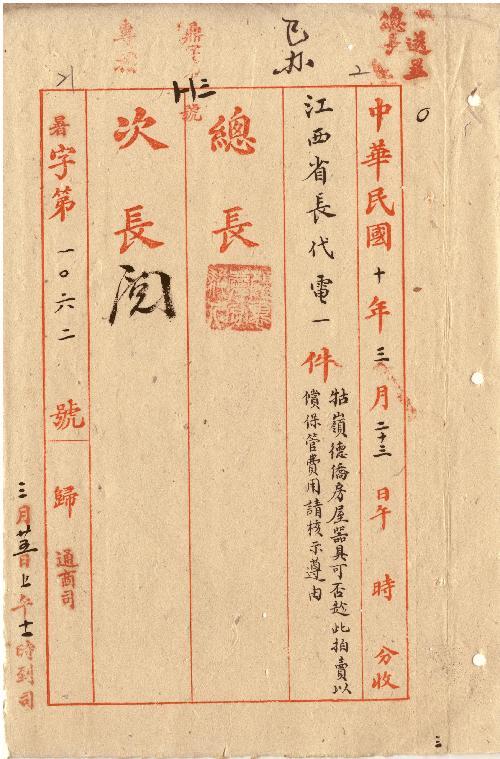 送呈
總長
已办
中華民國十年三月二十三日午時分收
江西省長代電一件
牯嶺德僑房屋器具可否趁此拍賣以
償保管費用請核示遵由
總長
次長閱
暑字第一〇六二號
歸通商司
三月廿五日上午十一時到司